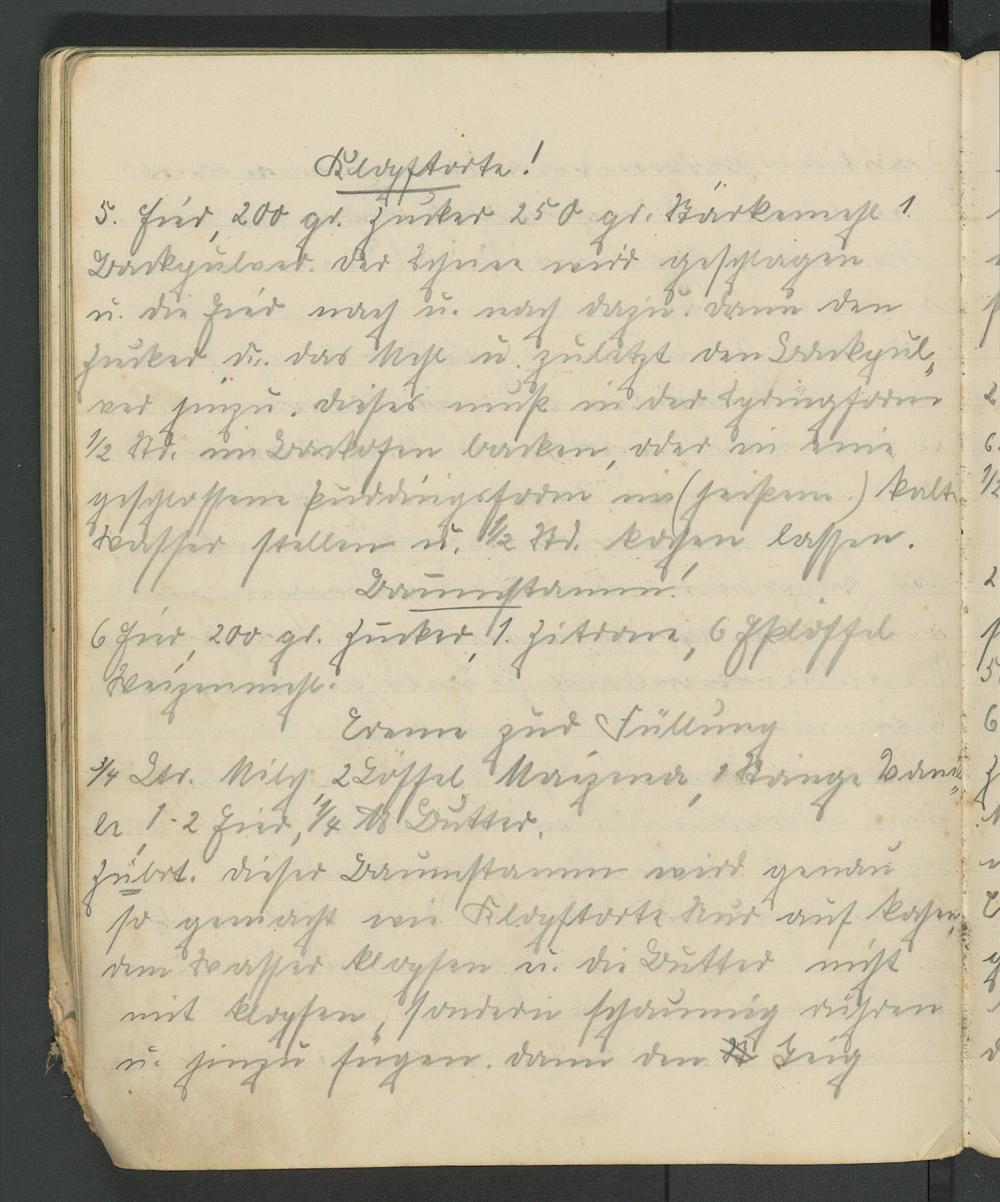 Klopftorte!
5. Eier, 200 gr. Zucker 250 gr. Stärkemehl 1
Backpulver. Der Schnee wird geschlagen
u. die Eier nach u. nach dazu. dann den
Zucker u. das Mehl u. zuletzt den Backpul„
ver hinzu. Dieses muß in der Springform
1/2 Std. im Backofen backen, oder in eine
geschlossene Puddingsform in (heißem.) kalt
Wasser stellen u. 1/2 Std. kochen lassen.
Baumstamm!
6 Eier, 200 gr. Zucker, 1. Zitrone, 6 Eßlöffel
Weizenmehl.
Creme zur Füllung
3/4 Ltr. Milch 2 Löffel Maizena, 1 Stange Vanil„
le, 1-2 Eier, 1/4 ℔ Butter.
Zubrt. Dieser Baumstamm wird genau
so gemacht wie Klopftorte Nur auf kochen„
dem Wasser klopfen u. die Butter nicht
mit klopfen, sondern schaumig rühren
u. hinzu fügen. Dann den Teig